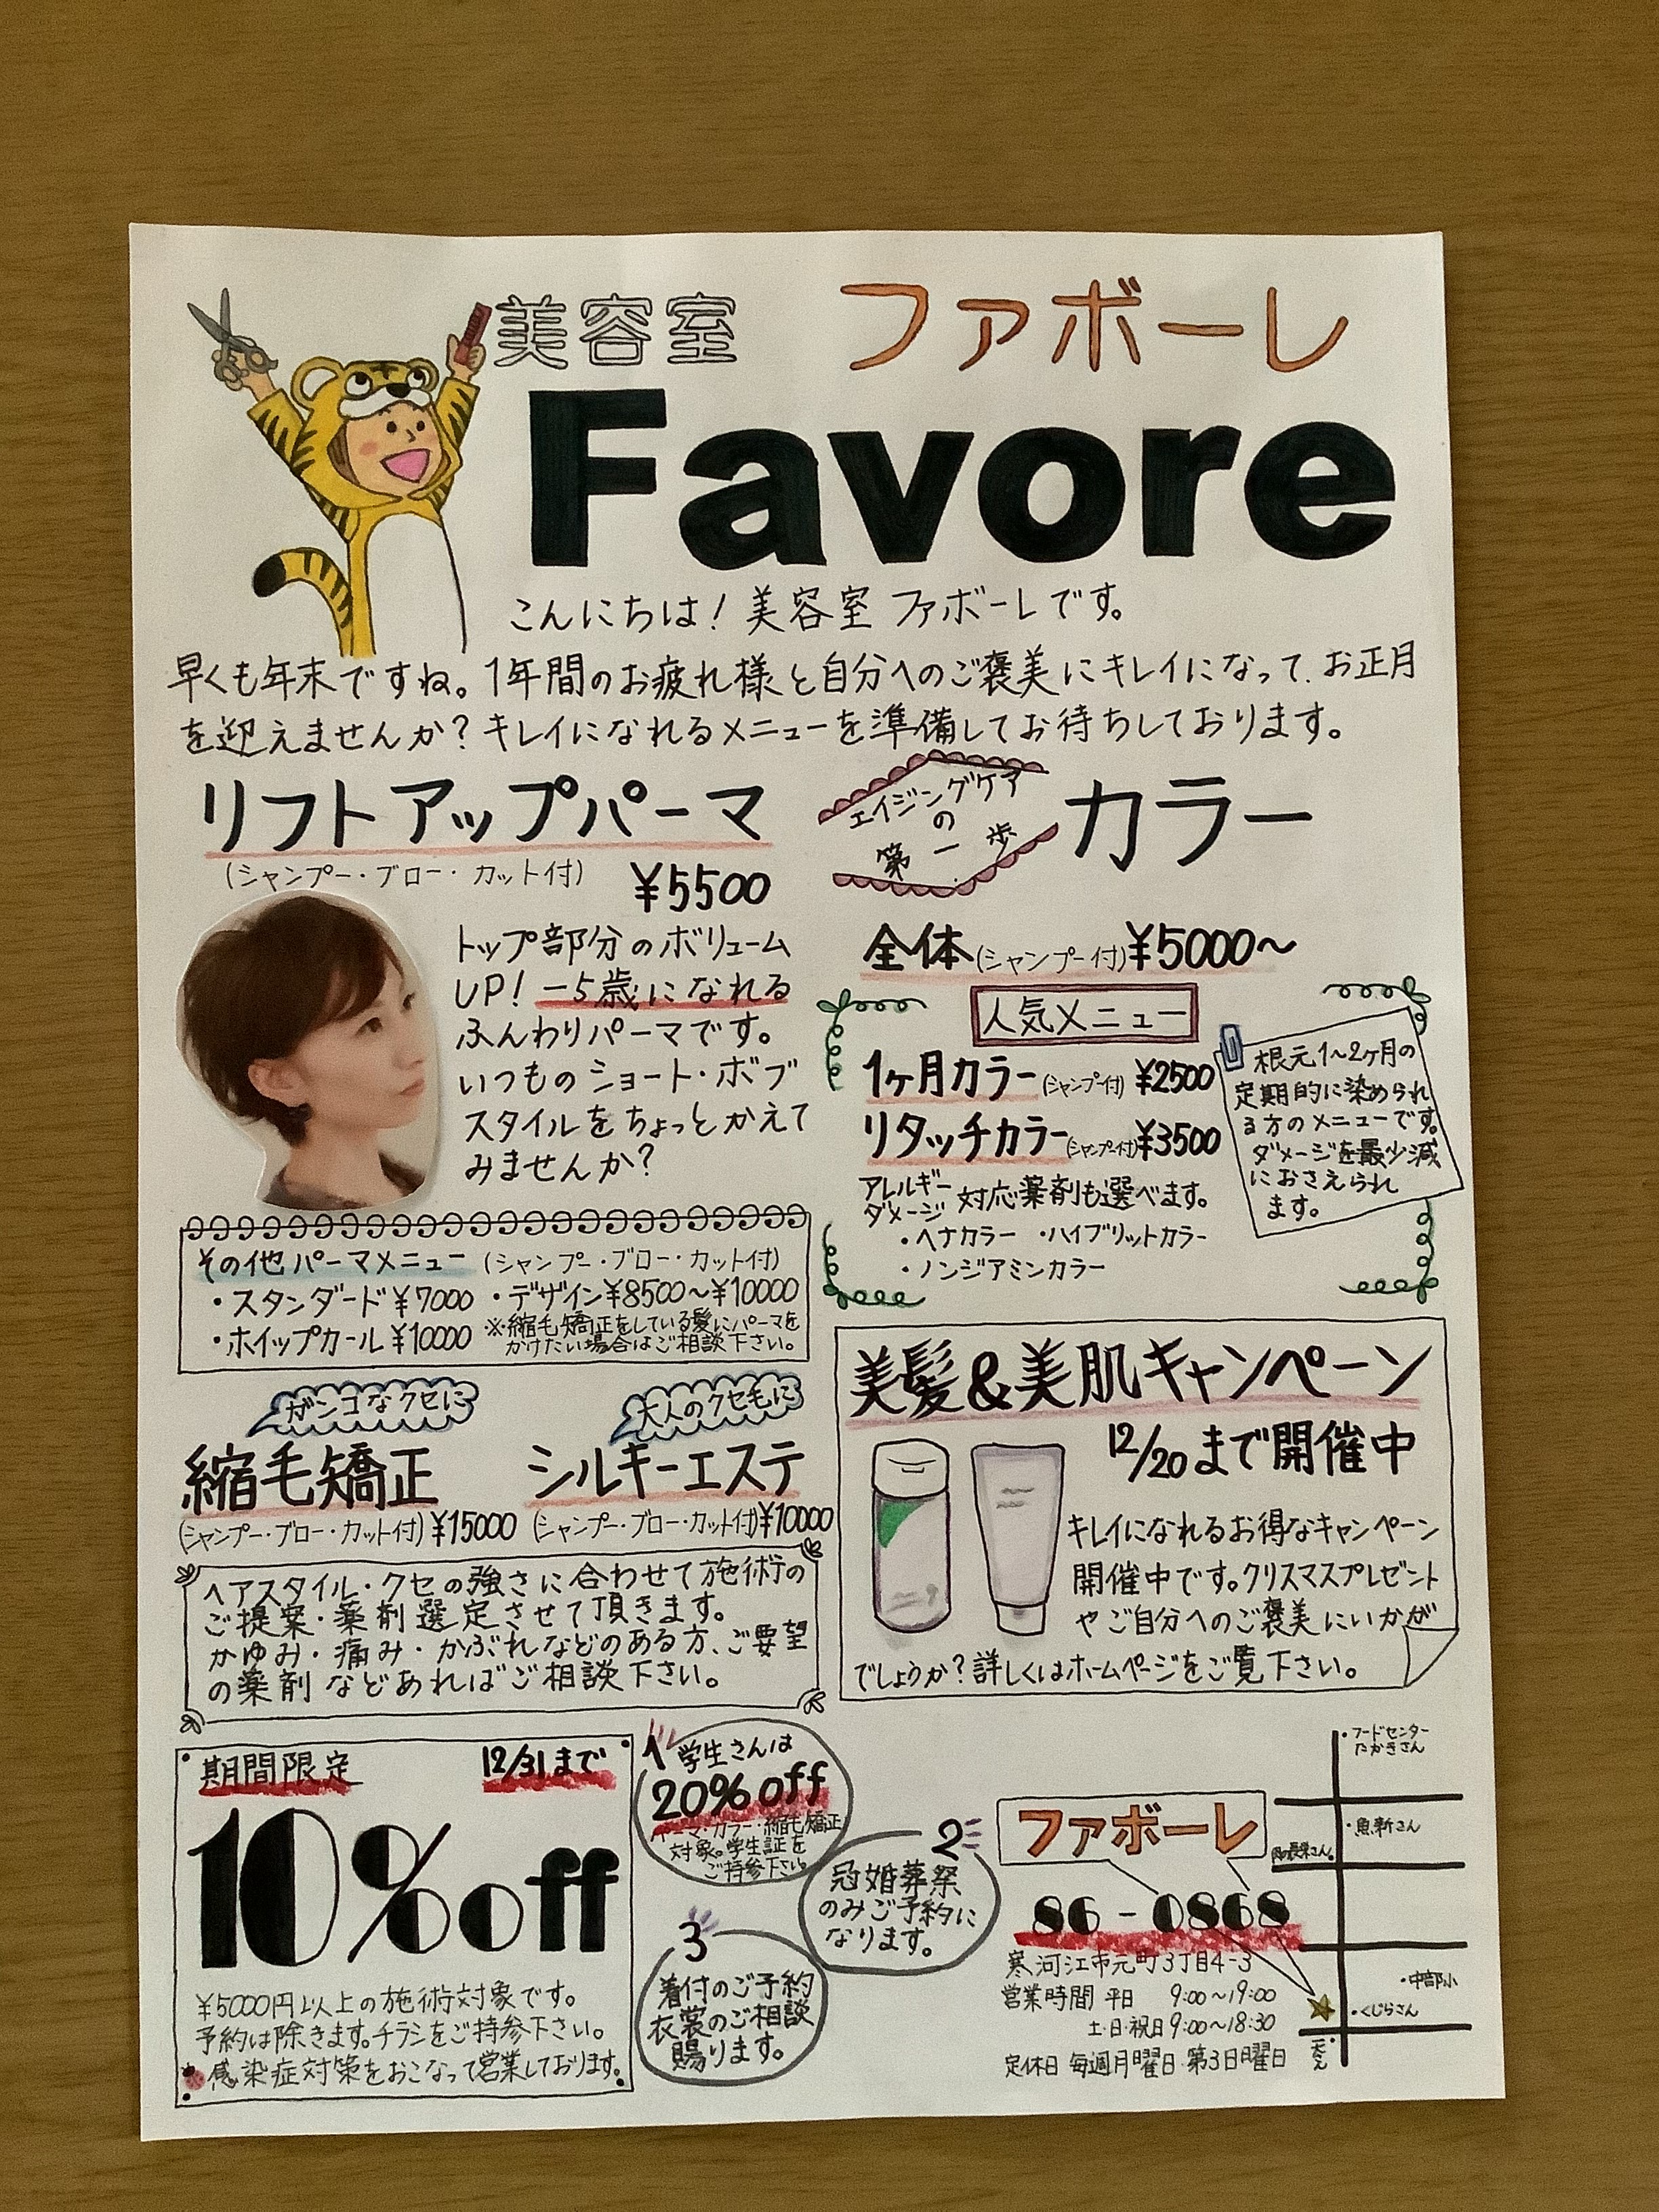 美容室 ファボーレ
Favore
こんにちは!美容室 ファボーレです。
早くも年末ですね。1年間のお疲れ様と自分へのご褒美にキレイになって、お正月
を迎えませんか?キレイになれるメニューを準備してお待ちしております。
リフトアップパーマ
(シャンプー・ブロー・カット付)
¥5500
トップ部分のボリューム
UP!-5歳になれる
ふんわりパーマです。
いつものショート・ボブ
スタイルをちょっとかえて
みませんか?
その他パーマメニュー(シャンプー・ブロー・カット付)
・スタンダード¥7000 ・デザイン¥8500〜¥10000
・ホイップカール¥10000
※縮毛矯正をしている髪にパーマを
かけたい場合はご相談下さい。
エイジングケア
の
第一歩
カラー
全体(シャンプー付)¥5000〜
人気メニュー
1ヶ月カラー(シャンプー付) ¥2500
リタッチカラー(シャンプー付)¥3500
根元1〜2ヶ月の
定期的に染められ
る方のメニューです。
ダメージを最少減
におさえられ
ます。
アレルギー
ダメージ
対応薬剤も選べます。
・ヘナカラー ・ハイブリットカラー
・ノンジアミンカラー
ガンコなクセに
縮毛矯正
(シャンプー・ブロー・カット付)¥15000
大人のクセ毛に
シルキーエステ
(シャンプー・ブロー・カット付)¥10000
ヘアスタイル・クセの強さに合わせて施術の
ご提案・薬剤選定させて頂きます。
かゆみ・痛み・かぶれなどのある方、ご要望
の薬剤などあればご相談下さい。
美髪&美肌キャンペーン
12/20まで開催中
キレイになれるお得なキャンペーン
開催中です。クリスマスプレゼント
やご自分へのご褒美にいかが
でしょうか?詳しくはホームページをご覧下さい。
期間限定 12/31まで
10%off
¥5000円以上の施術対象です。
予約は除きます。チラシをご持参下さい。
感染症対策をおこなって営業しております。
1 学生さんは
20%off
パーマ・カラー・縮毛矯正
対象。学生証を
ご持参下さい。
2
冠婚葬祭
のみご予約に
なります。
3
着付のご予約
衣裳のご相談
賜ります。
ファボーレ
86-0868
寒河江市元町3丁目4-3
営業時間 平日 9:00〜19:00
土・日・祝日9:00〜18:30
定休日 毎週月曜日・第3日曜日
・フードセンター
たかきさん
・魚新さん
肉の長栄さん・
・中部小
・くじらさん